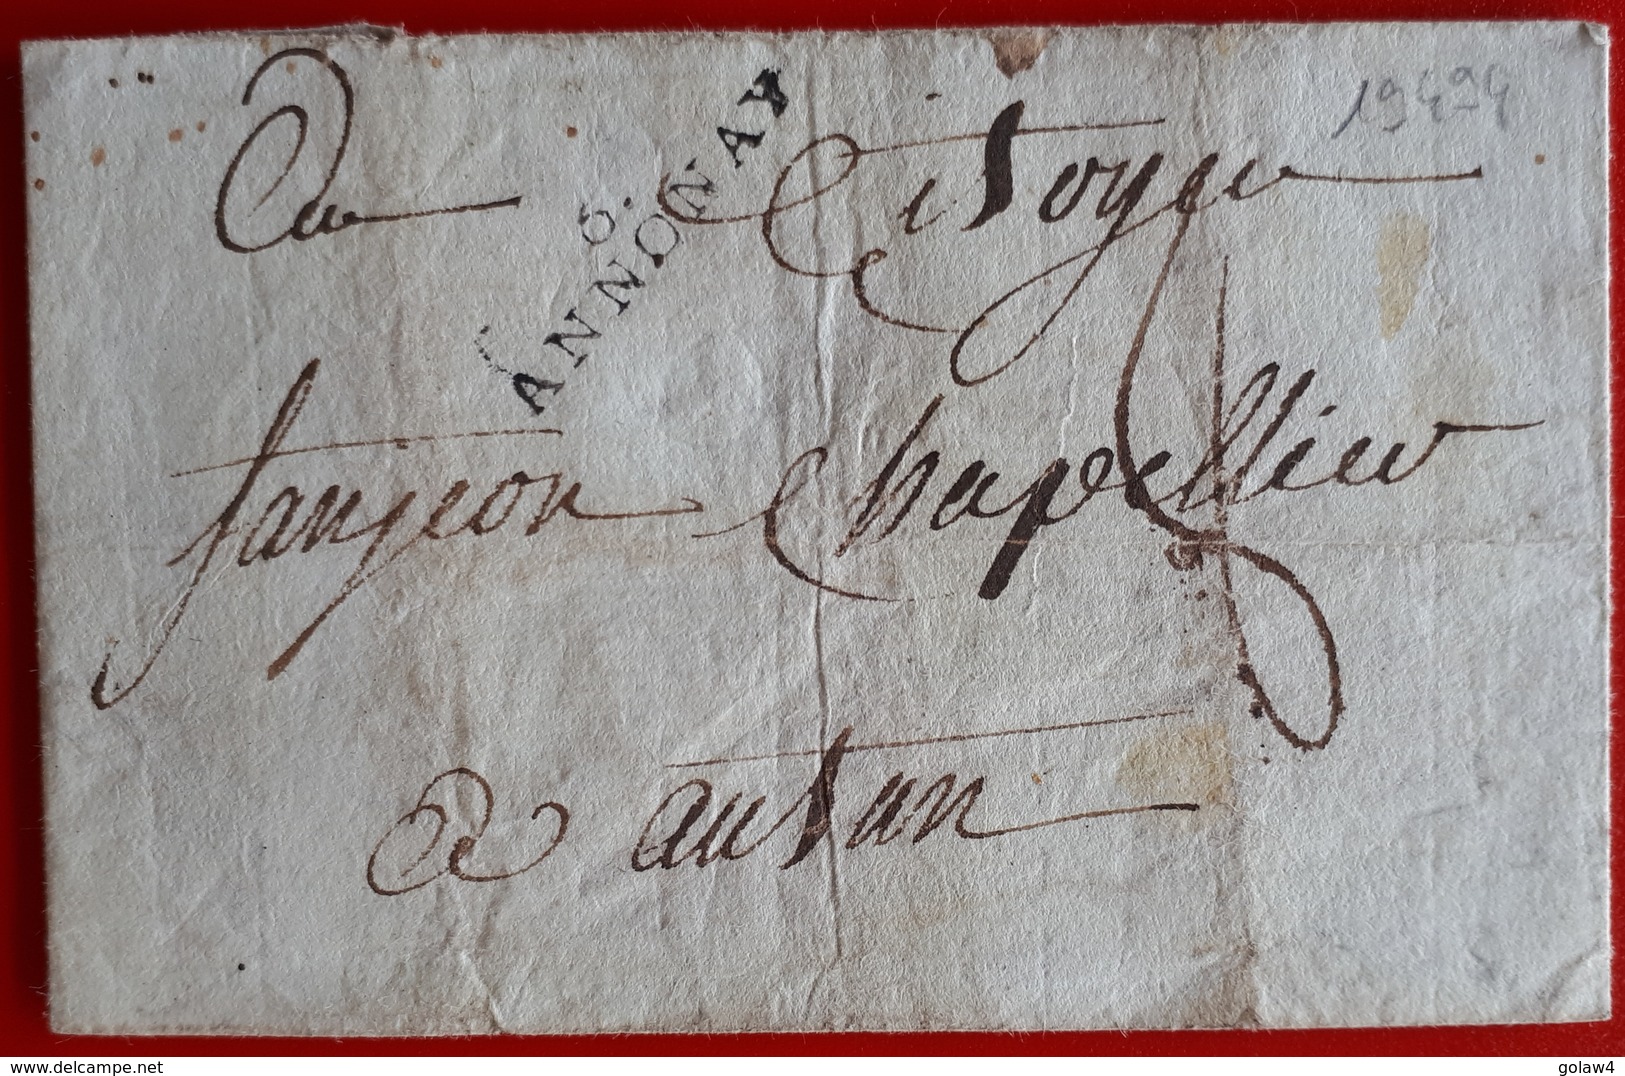 19494
6.
ANNONAY
Au Citoyen
fanjeon Chapellier
a autun
www.delcampe.net
golaw4